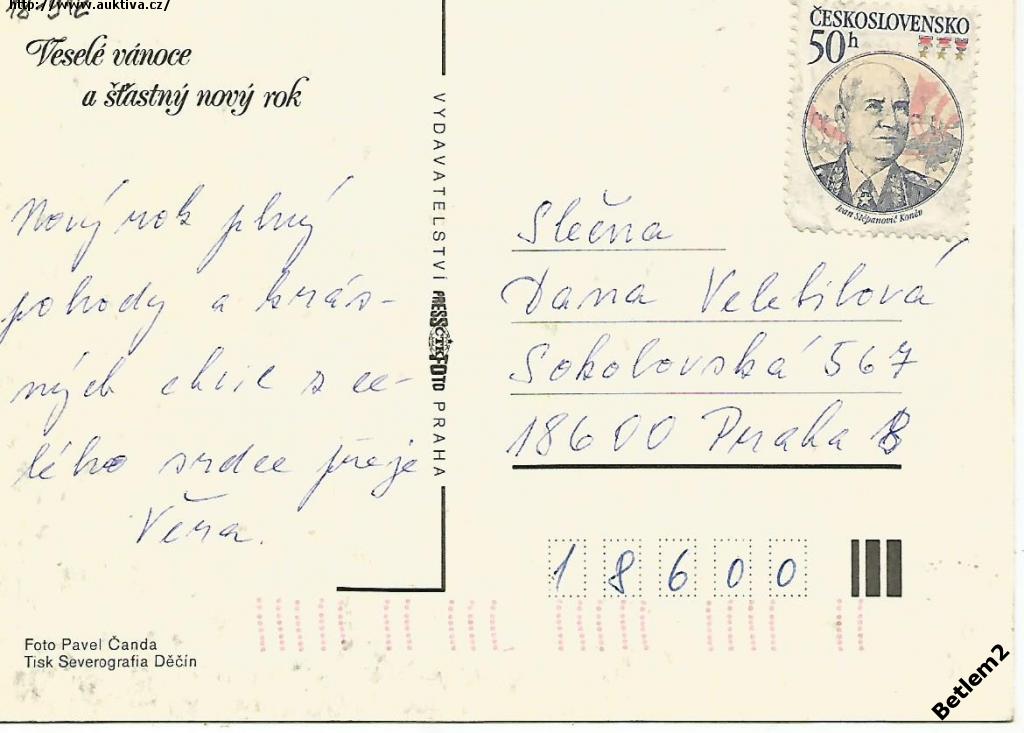 http://www.auktiva.cz/
Veselé vánoce
a šťastný nový rok
Nový rok plný
pohody a krás-
ných chvil z ce-
lého srdce přeje
Věra.
VYDAVATELSTVÍ PRESSFOTO PRAHA
ČTK
ČESKOSLOVENSKO
50h
Ivan Stěpanovič Koněv
Slečna
Dana Velebilová
Sokolovská 567
18600 Praha 8
18600
Foto Pavel Čanda
Tisk Severografia Děčín
Betlem2